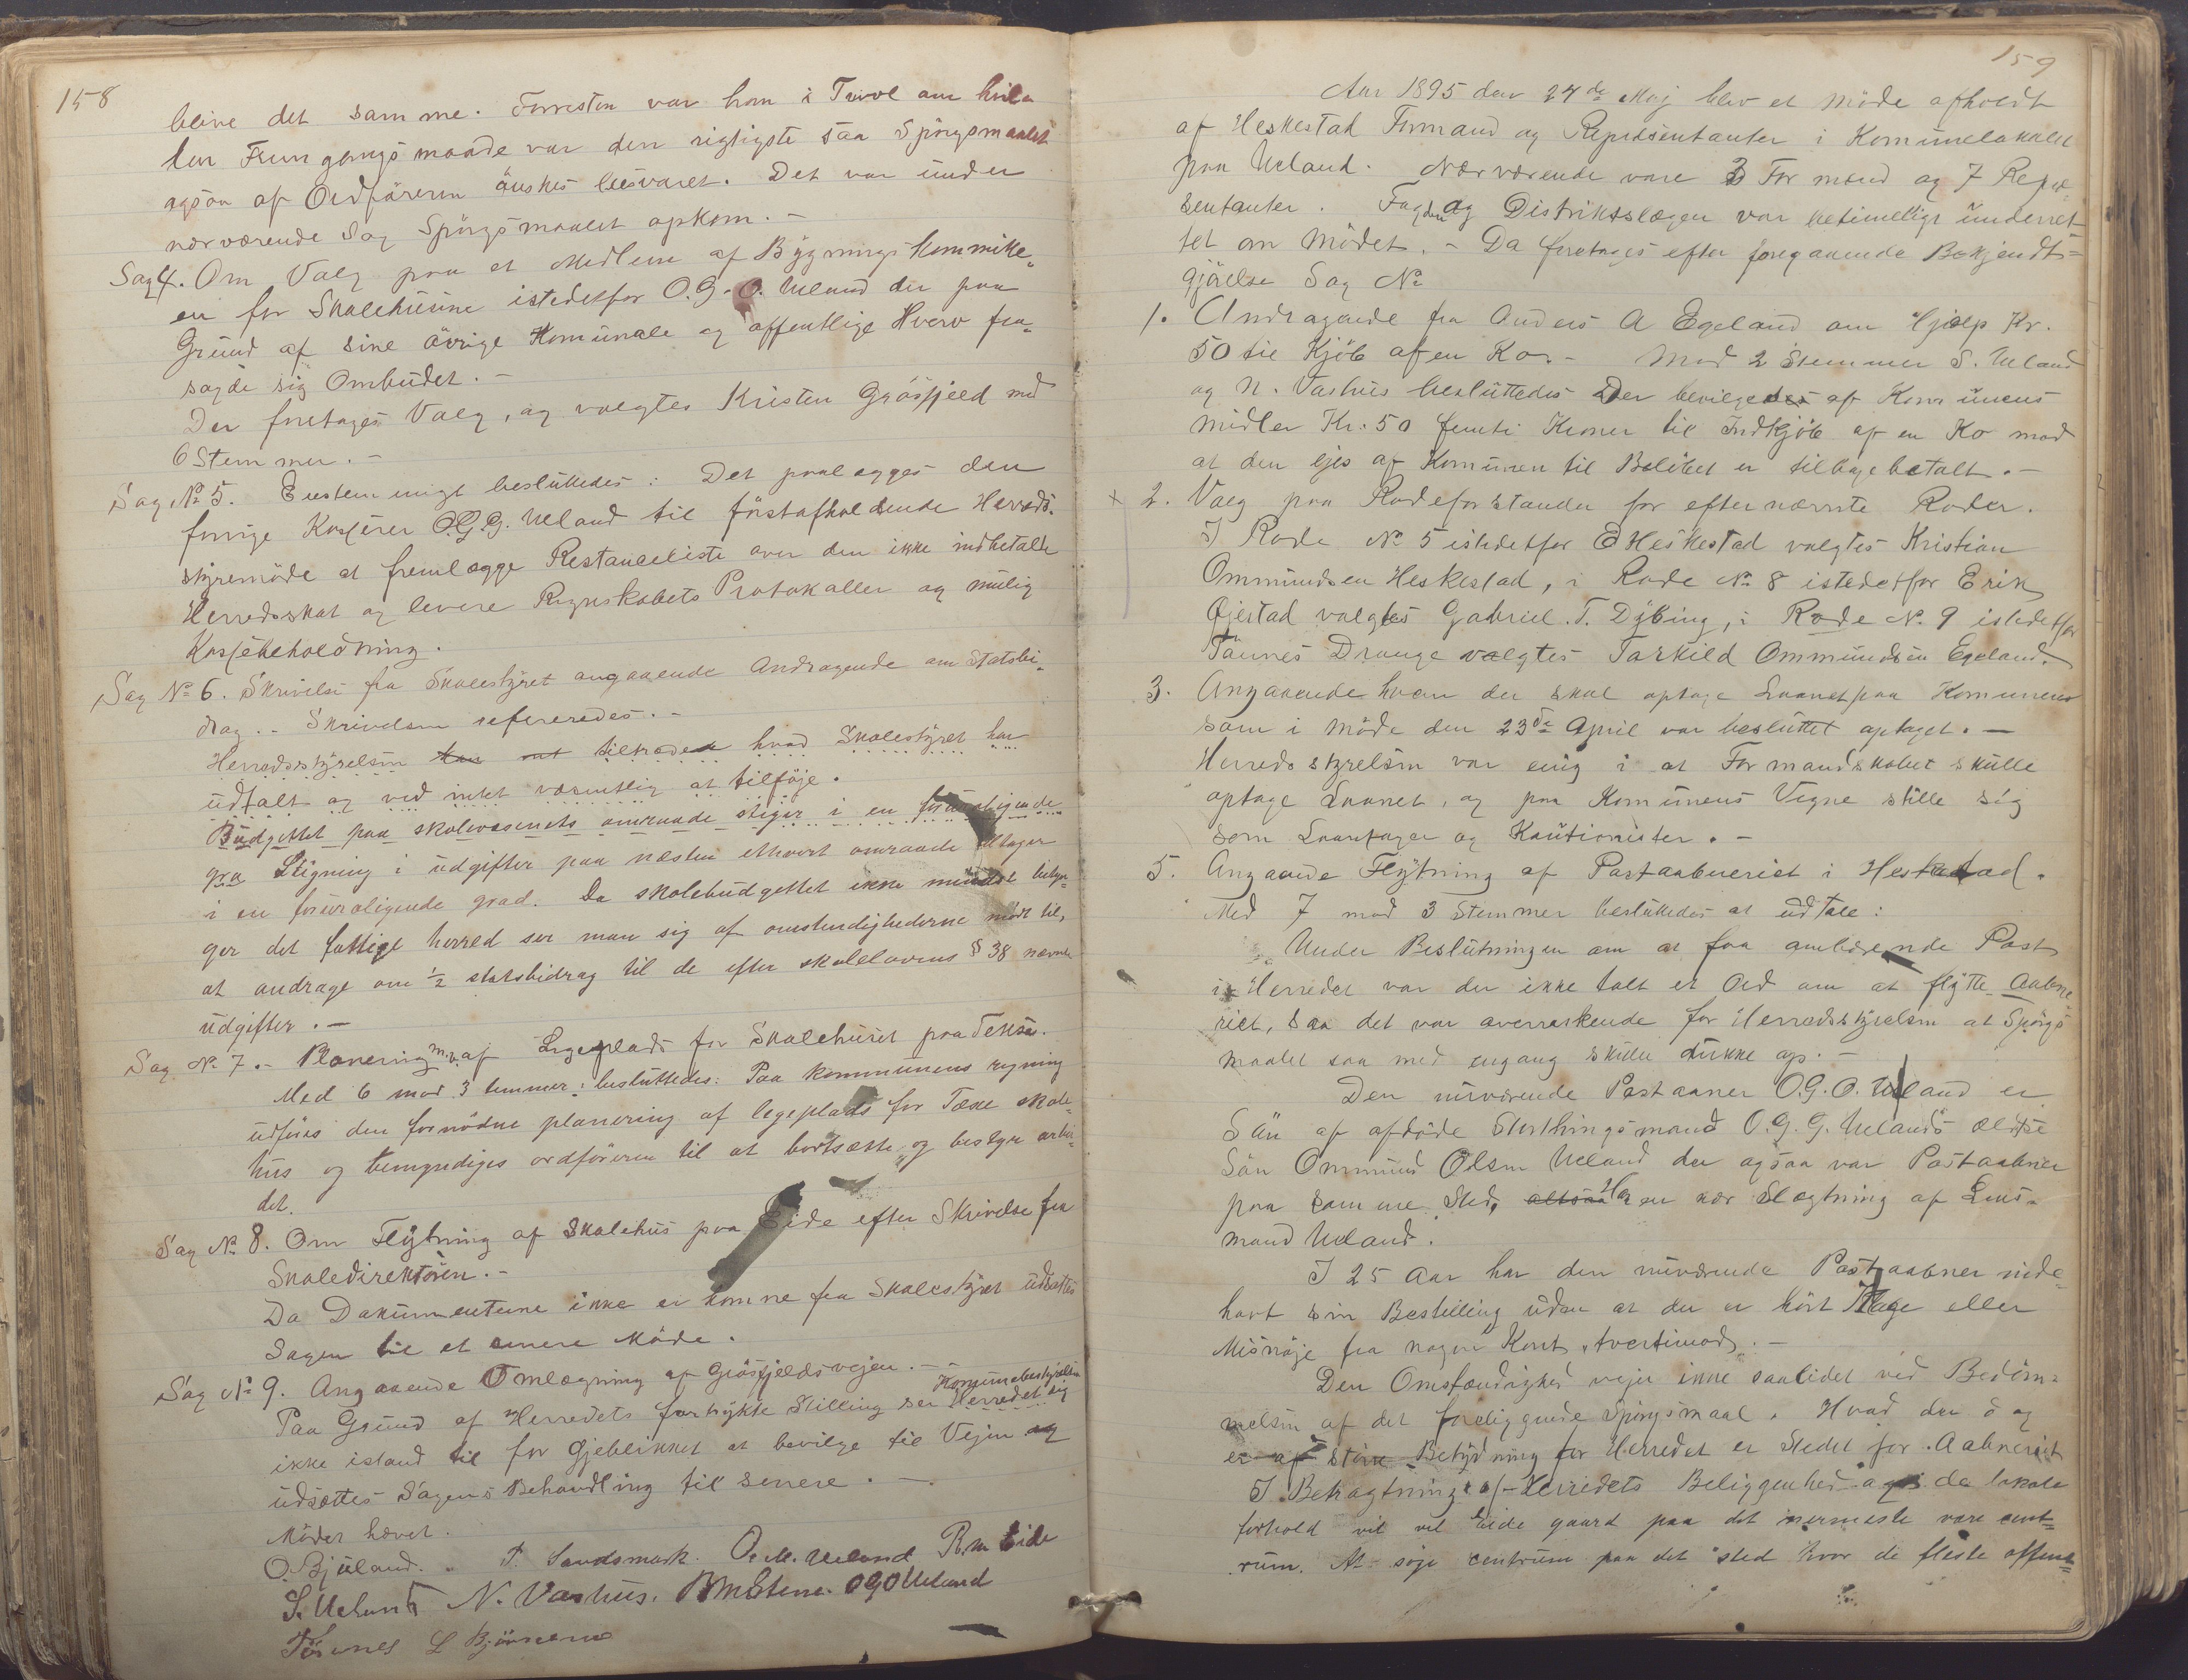 158
blive det samme. Forresten var han i Tvivl om hvil-
ken Fremgangsmaade var den rigtigste saa Spörgsmaalet
ogsaa af Ordföreren önskes besvaret. Det var under
nærværende Sag Spörgsmaalet opkom. -
Sag 4. Om Valg paa et Medlem af Bygningskommite-
en for Skolehusene istedetfor O.G.O. Ueland der paa
Grund af sine övrige Komunale og offentlige Hverv fra-
sagde sig Ombudet. -
Der foretages Valg, og valgtes Kristen Grösfjeld med
6 Stemmer. -
Sag No 5. Enstemmigt besluttedes: Det paalægges den
forrige Kasserer O.G.G. Ueland til förstafholdende Herreds-
styremöde at fremlægge Restanceliste over den ikke indbetalte
Herredsskat og levere Regnskabets Protokoller og mulig
Kassebeholdning.
Sag No 6. Skrivelse fra Skolestyret angaaende Andragende om Statsbi-
drag. - Skrivelsen refereredes. -
Herredsstyrelsen tiltræder hvad Skolestyret har
udtalt og ved intet væsentlig at tilföje.
Budgettet paa skolevæsenets omraade stiger i en foruroligende
gra Stigning i udgifter paa næsten ethvert omraade tiltager
i en foruroligende grad. Da skolebudgettet ikke mindst betyn-
ger det fattige herred ser man sig af omstendighederne nödt til,
at andrage om ½ statsbidrag til de efter skolelovens § 38 nævnte
udgifter. -
Sag No 7. - Planering m.v. af Legeplads for Skolehuset paa Teksa.
Med 6 mod 3 temmer: besluttedes: Paa kommunens regning
udföres den fornödne planering af legeplads for Tæxe skole-
hus og bemyndiges ordföreren til at bortsætte og bestyre arbei-
det.
Sag No 8. Om Flytning af Skolehus paa Eide efter Skrivelse fra
Skoledirektören. -
Da Dokumenterne ikke er komne fra Skolestyret udsættes
Sagen til et senere Möde.
Sag No 9. Angaaende Omlægning af Grösfjeldsvejen. -
Komunebestyrelsen
Paa Grund af Herredets fortrykte Stilling ser Herredet sig
ikke istand til for Öjeblikket at bevilge til Vejen og
udsættes Sagens Behandling til senere. -
Mödet hævet.
O. Bjuland. T. Sandsmark. O. M. Ueland R. M. Eide
S. Ueland N. Vashus. OGOUeland
Tönnes L Björnemo
159
Aar 1895 den 27de Maj blev et Möde afholdt
af Heskestad Formand og Repræsentanter i Komunelokalet
paa Ueland. Nærværende vare 3 Formænd og 7 Repræ-
sentanter. Fogden og Distriktslægen var betimelligt underret-
tet om Mödet. - Da foretages efter foregaaende Bekjendt-
gjörelse Sag No
1. Andragende fra Anders A Egeland om Hjælp Kr.
50 til Kjöb af en Ko. - Mod 2 Stemmer S. Ueland
og N. Vashus besluttedes Der bevilgedes af Komunens
midler Kr. 50 femti Kroner til Indkjöb af en Ko mod
at den ejes af Komunen til Belöbet er tilbagebetalt. -
2. Valg paa Rodeforstander for efternævnte Roder.
I Rode No 5 istedetfor E Heskestad valgtes Kristian
Ommundsen Heskestad, i Rode No 8 istedetfor Erik
Öjestad valgtes Gabriel T. Dybing, i Rode No 9 istedetfor
Tönnes Drange valgtes Tarkild Ommundsen Egeland.
3. Angaaende hvem der skal optage Laanet paa Komunens
som i Möde den 23de April var besluttet optaget. -
Herredsstyrelsen var enig i at Formandskabet skulle
optage Laanet, og paa Komunens Vegne stille sig
som Laantager og Kautionister. -
5. Angaaende Flytning af Postaabneriet i Heskestad.
Med 7 mod 3 Stemmer besluttedes at udtale:
Under Beslutningen om at faa ombærende Post
i Herredet var der ikke talt et Ord om at flytte Aabne-
riet, saa det var overraskende for Herredsstyrelsen at Spörgs-
maalet saa med engang skulle dukke op. -
Den nuværende Postaaner O.G.O. Ueland er
Sön af afdöde Storthingsmand O.G.G. Uelands ældste
Sön Ommund Olsen Ueland der ogsaa var Postaabner
paa samme Sted, altsaa Han en nær Slægtning af Lens-
mand Ueland.
I 25 Aar har den nuværende Postaabner inde-
havt sin Bestilling uden at der er hört Klage eller
Misnöje fra nogen Kant, tvertimod. -
Den Omstændighed vejer ikke saalidet ved Bedöm-
melsen af det foreliggende Spörgsmaal. Hvad der og
er af större Betydning for Herredet er Stedet for Aabneriet
I Betragtning af Herredets Beliggenhed og de lokale
forhold vil vel Eide gaard paa det nærmeste være cent-
rum. At söge centrum paa det sted hvor de fleste offent-